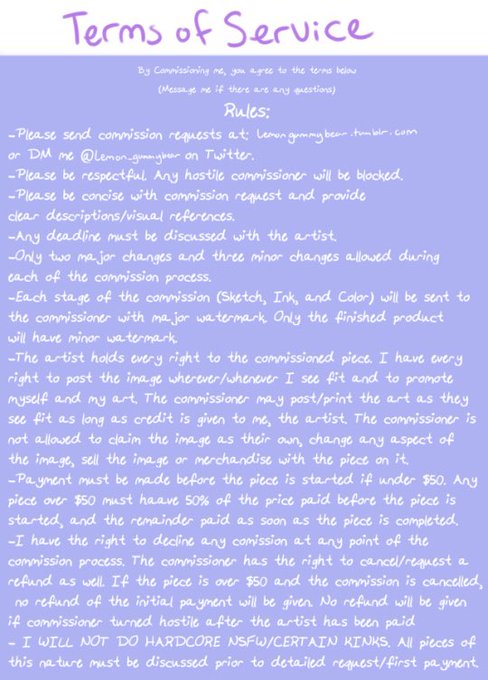 Terms of Service
By Commissioning me, you agree to the terms below
(Message me if there are any questions)
Rules:
-Please send commission requests at: lemongummybear.tumblr.com
or DM me @lemon_gummybear on Twitter.
-Please be respectful. Any hostile commissioner will be blocked.
-Please be concise with commission request and provide
clear descriptions/visual references.
-Any deadline must be discussed with the artist.
-Only two major changes and three minor changes allowed during
each of the commission process.
-Each stage of the commission (Sketch, Ink, and Color) will be sent to
the commissioner with major watermark. Only the finished product
will have minor watermark.
-The artist holds every right to the commissioned piece. I have every
right to post the image wherever/whenever I see fit and to promote
myself and my art. The commissioner may post/print the art as they
see fit as long as credit is given to me, the artist. The commissioner is
not allowed to claim the image as their own, change any aspect of
the image, sell the image or merchandise with the piece on it.
-Payment must be made before the piece is started if under $50. Any
piece over $50 must haave 50% of the price paid before the piece is
started, and the remainder paid as soon as the piece is completed.
-I have the right to decline any comission at any point of the
commission process. The commissioner has the right to cancel/request a
refund as well. If the piece is over $50 and the commission is cancelled,
no refund of the initial payment will be given. No refund will be given
if commissioner turned hostile after the artist has been paid
- I WILL NOT DO HARDCORE NSFW/CERTAIN KINKS. All pieces of
this nature must be discussed prior to detailed request/first payment.